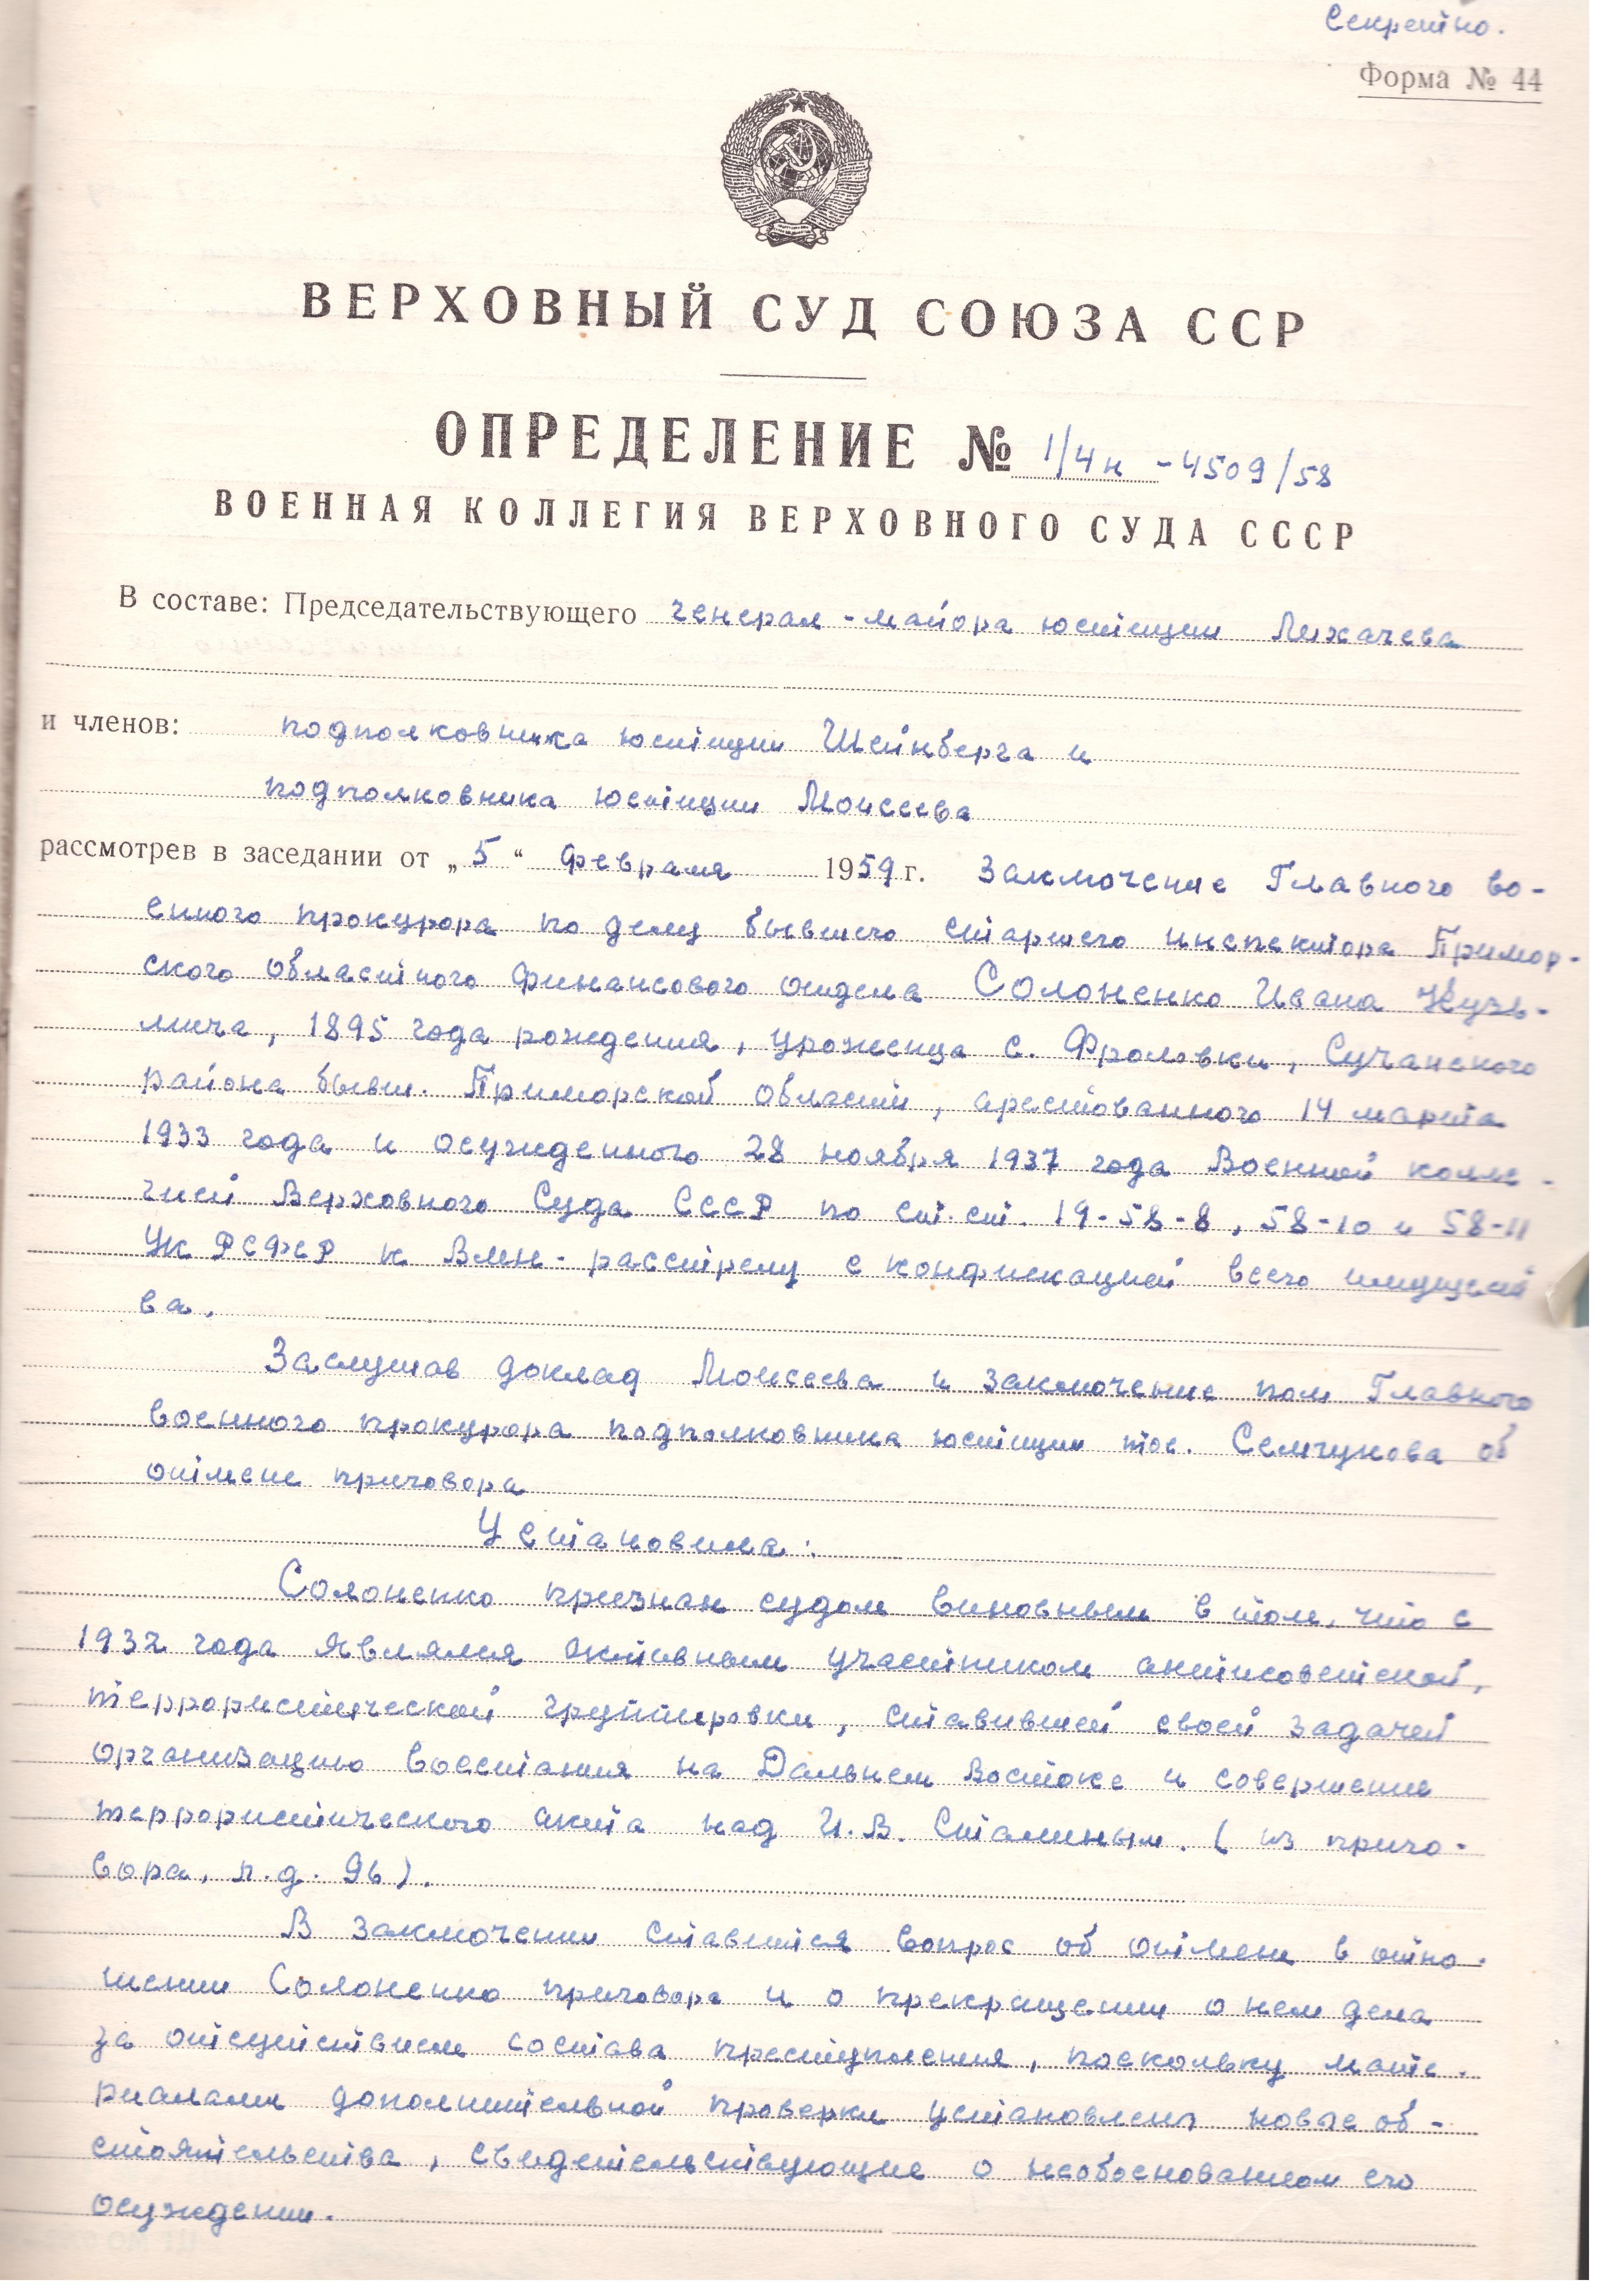 Секретно.
Форма № 44
ВЕРХОВНЫЙ СУД СОЮЗА ССР
ОПРЕДЕЛЕНИЕ № 1/4н -4509/58
ВОЕННАЯ КОЛЛЕГИЯ ВЕРХОВНОГО СУДА СССР
В составе: Председательствующего генерал-майора юстиции Лихачева
и членов: подполковника юстиции Шейнберга и
подполковника юстиции Моисеева
рассмотрев в заседании от „5“ февраля 1959 г. Заключение Главного во-
енного прокурора по делу бывшего старшего инспектора Примор-
ского областного финансового отдела Солоненко Ивана Кузь-
мича, 1895 года рождения, уроженца с. Фроловки, Сучанского
района бывш. Приморской области, арестованного 14 марта
1933 года и осужденного 28 ноября 1937 года Военной колле-
гией Верховного Суда СССР по ст.ст. 19-58-8, 58-10 и 58-11
УК РСФСР к ВМН - расстрелу с конфискацией всего имущест
ва.
Заслушав доклад Моисеева и заключение пом Главного
военного прокурора подполковника юстиции тов. Семчукова об
отмене приговора
Установила:
Солоненко признан судом виновным в том, что с
1932 года являлся активным участником антисоветской,
террористической группировки, ставившей своей задачей
организацию восстания на Дальнем Востоке и совершение
террористического акта над И.В. Сталиным. (из приго-
вора, л.д. 96).
В заключении ставится вопрос об отмене в отно-
шении Солоненко приговора и о прекращении о нем дела
за отсутствием состава преступления, поскольку мате-
риалами дополнительной проверки установлены новые об-
стоятельства, свидетельствующие о необоснованном его
осуждении.